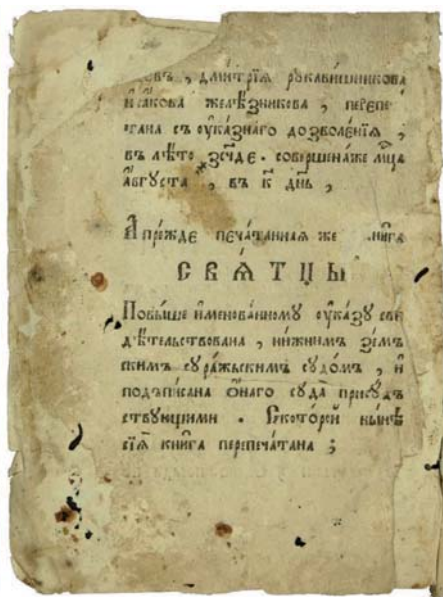 димитрїѧ рꙋкави́шникова
и҆ і҆а́кова желѣ́зникова , перепе
ча́тана съ ᲂу҆ка́знаго дозволе́нїѧ ,
въ лѣ́то ҂зс҃чде . соверше́наже мц҃а
а҆́вгꙋста , въ к҃ де́нь ,
А҆ пре́жде печа́танная же кни́га
СВѦ́ТЦЫ
Повы́ше и҆менова́нномꙋ ᲂу҆ка́зꙋ сви
дѣ́тельствована , ни́жнимъ зе́м
скимъ сꙋра́жьскимъ сꙋдо́мъ , и҆
подъпи́сана ѻ҆́наго сꙋда̀ присꙋ́дъ
ствꙋющими . Ското́рой ны́нѣ
сїѧ̀ кни́га перепеча́тана ;